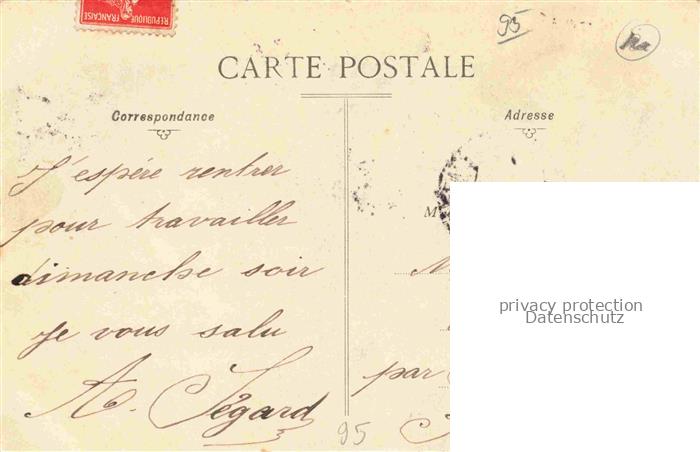 REPUBLIQUE
FRANÇAISE
95
CARTE POSTALE
Correspondance
Adresse
J'espère rentrer
pour travailler
dimanche soir
Je vous salu
A. Ségard
M
M
par
95
privacy protection
Datenschutz